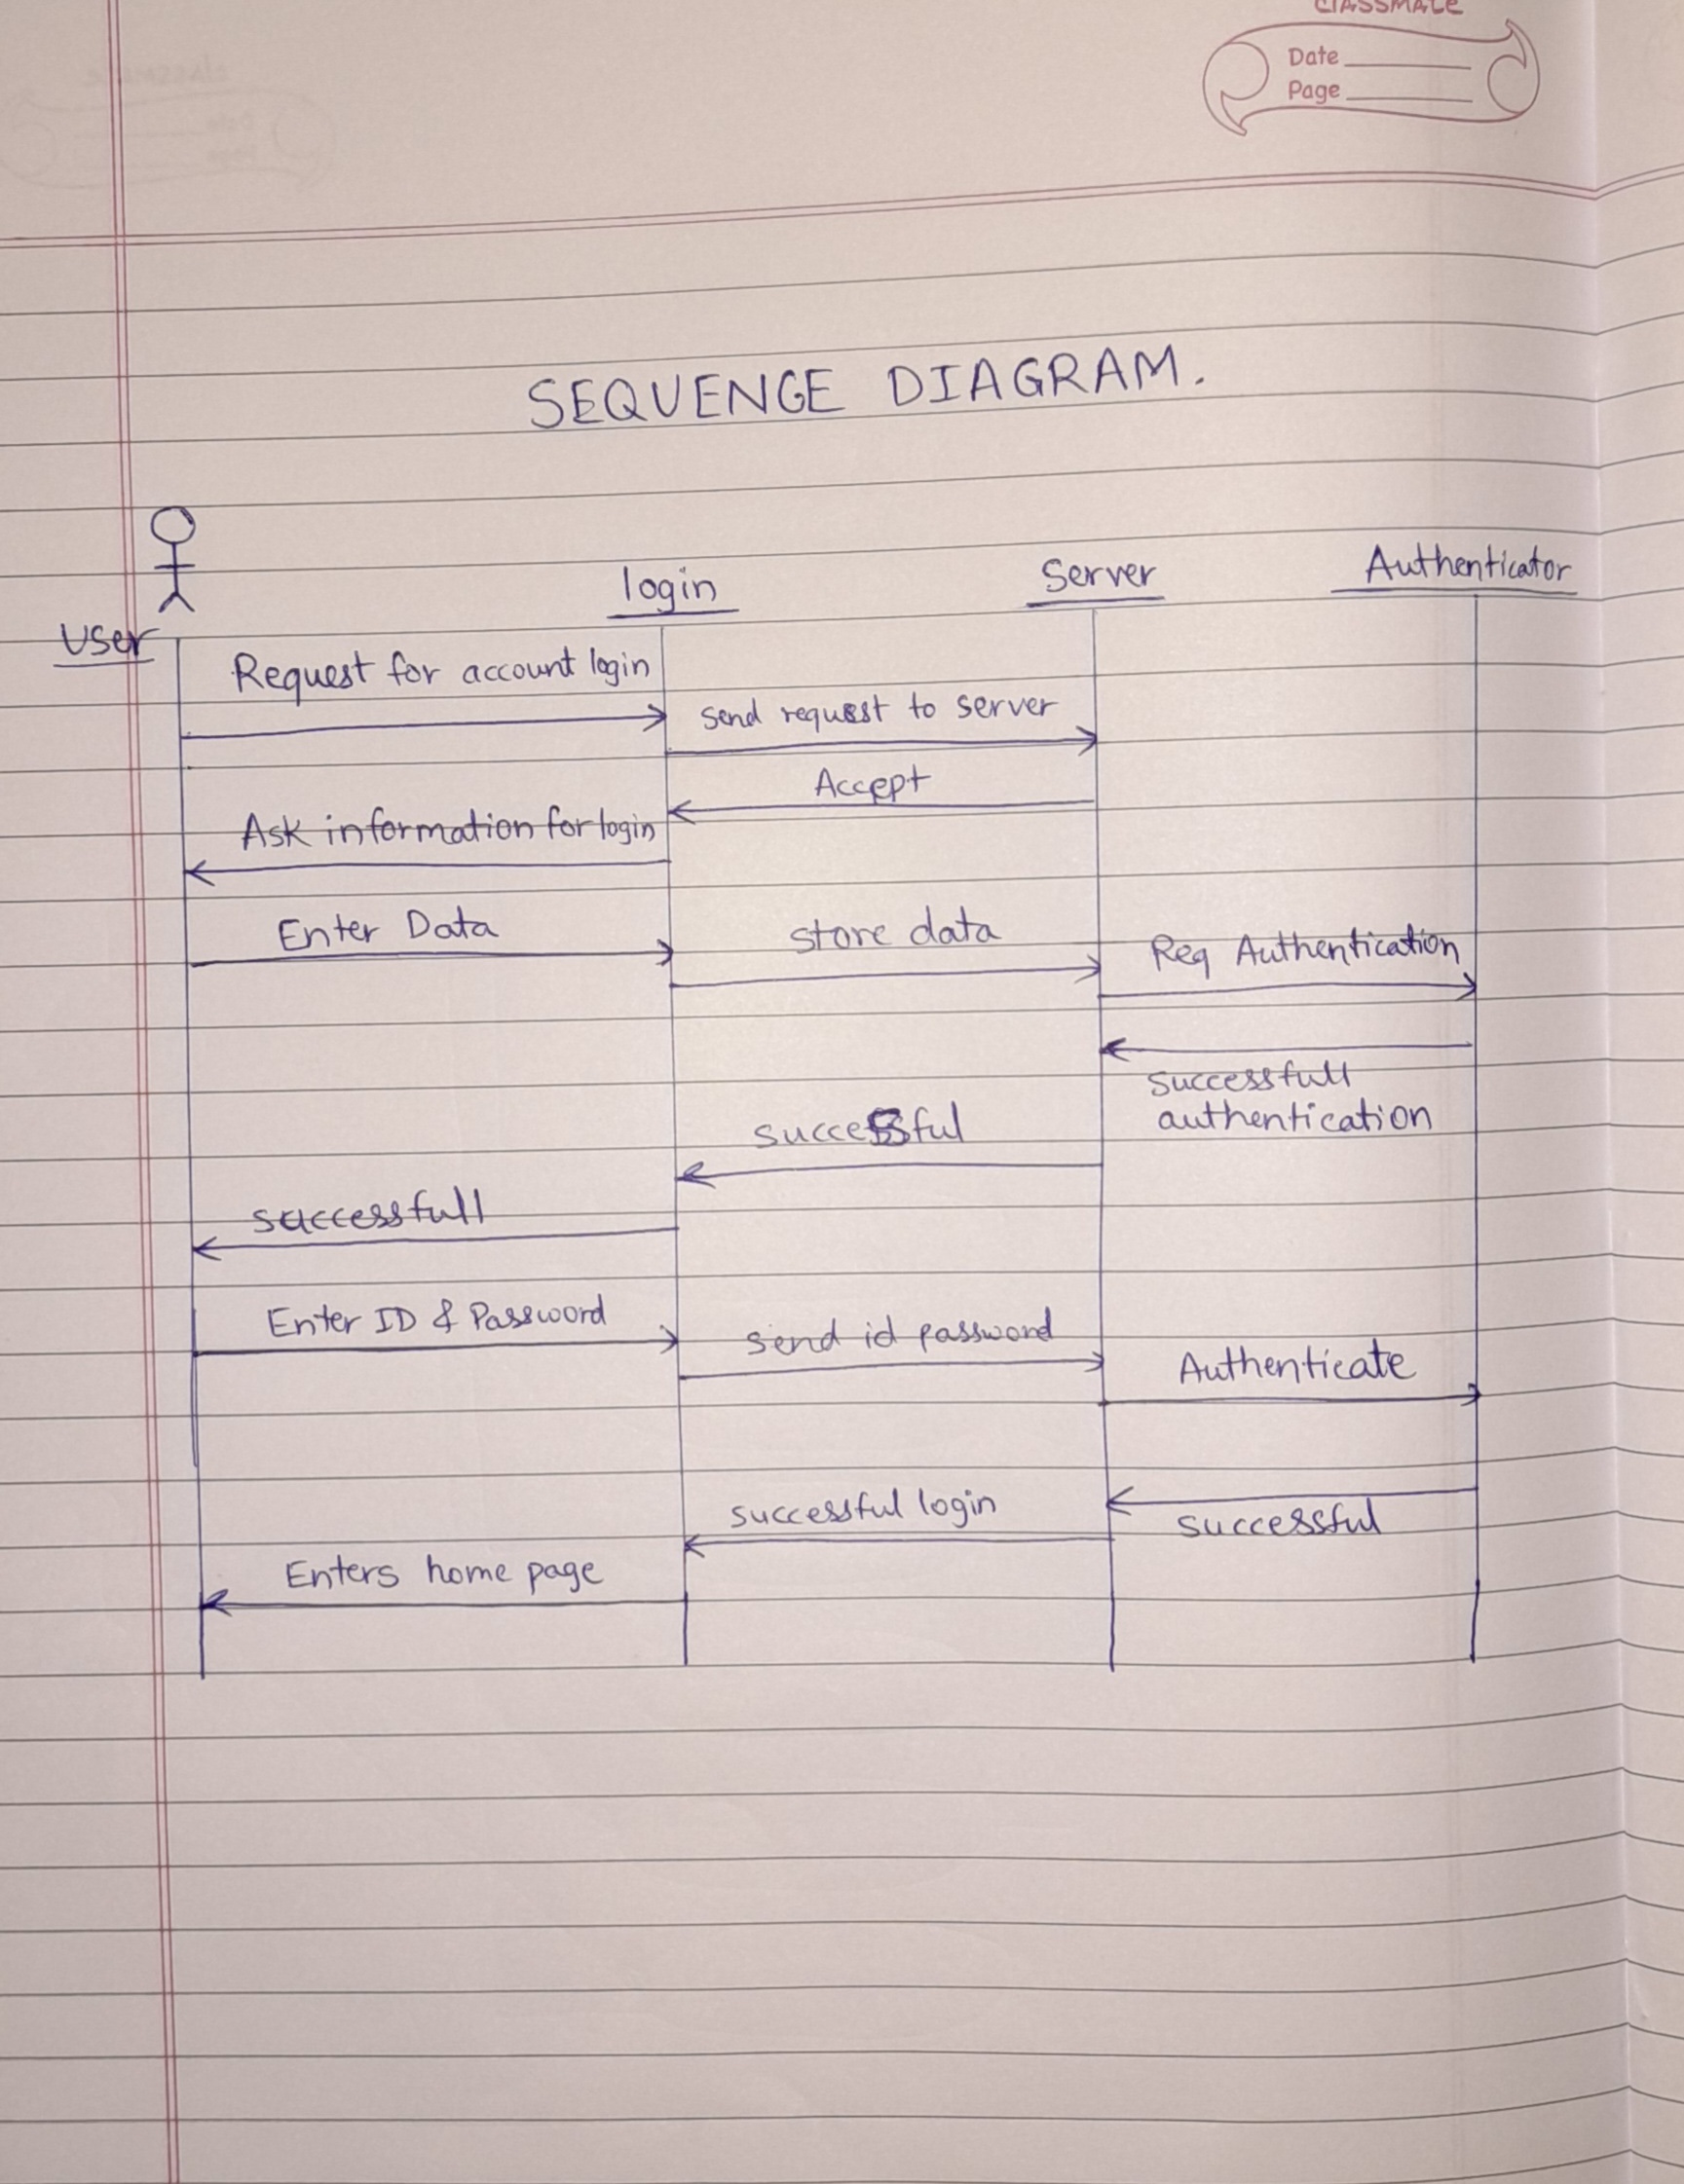 classmate
Date
Page
SEQUENCE DIAGRAM.
User
login
Server
Authenticator
Request for account login
send request to server
Accept
Ask information for login
Enter Data
store data
Req Authentication
successfull
authentication
successful
successfull
Enter ID & Password
send id password
Authenticate
successful
successful login
Enters home page